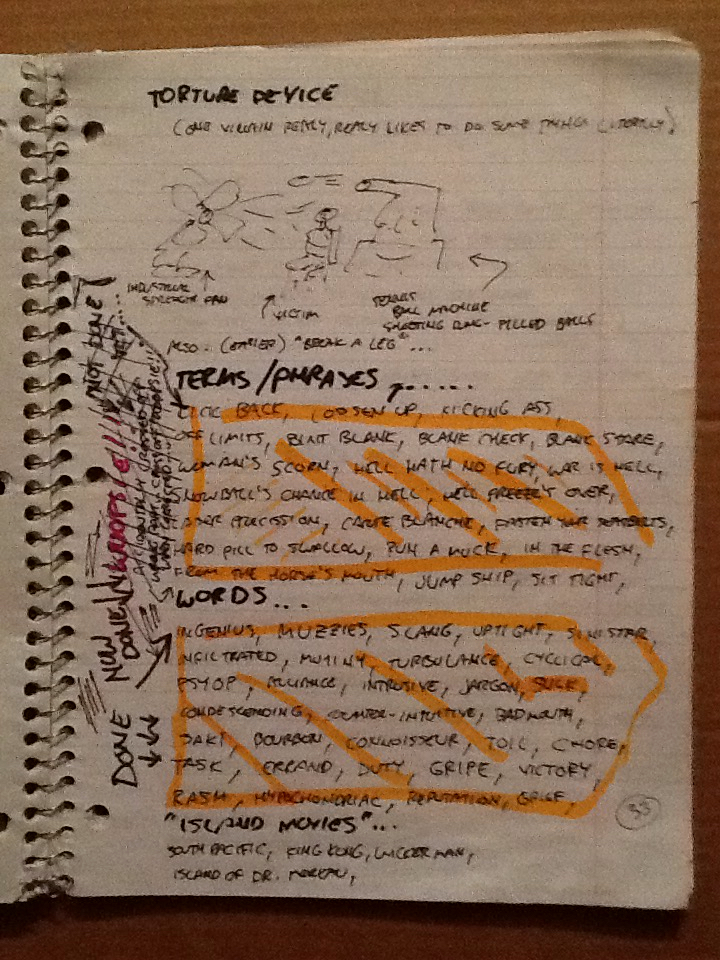 TORTURE DEVICE
(ONE VILLAIN REALLY, REALLY LIKES TO DO SOME THINGS LITERALLY)
INDUSTRIAL
STRENGTH FAN
VICTIM
TENNIS
BALL MACHINE
SHOOTING PILLED BALLS
ALSO.. (EASIER) "BREAK A LEG"...
TERMS/PHRASES,......
KICK BACK, LOOSEN UP, KICKING ASS,
OFF LIMITS, BLANK, BLANK CHECK, BLANK STARE,
WOMAN'S SCORN, HELL HATH NO FURY, WAR IS HELL,
SNOWBALL'S CHANCE IN HELL, HELL FREEZE'S OVER,
CARTE BLANCHE, FASTEN YOUR SEATBELTS,
HARD PILL TO SWALLOW, RUN A MUCK, IN THE FLESH,
FROM THE HORSE'S MOUTH, JUMP SHIP, SIT TIGHT,
WORDS...
INGENIUS, MUZZIES, SLANG, UPTIGHT, SINISTAR,
INFILTRATED, MUTINY, TURBULANCE, CYCLICAL,
PSYOP, ALLIANCE, INTRUSIVE, JARGON, SLICK,
CONDESCENDING, COUNTER-INTUITIVE, BADMOUTH,
BOURBON, CONNOISSEUR, TOIL, CHORE,
TASK, ERRAND, DUTY, GRIPE, VICTORY,
RASH, HYPOCHONDRIAC, REPUTATION, GRIEF,
"ISLAND MOVIES"...
SOUTH PACIFIC, KING KONG, WICKERMAN,
ISLAND OF DR. MOREAU,
38
NOT DONE
YET....
NOW
DONE
WHOOPSIE!!!
DONE